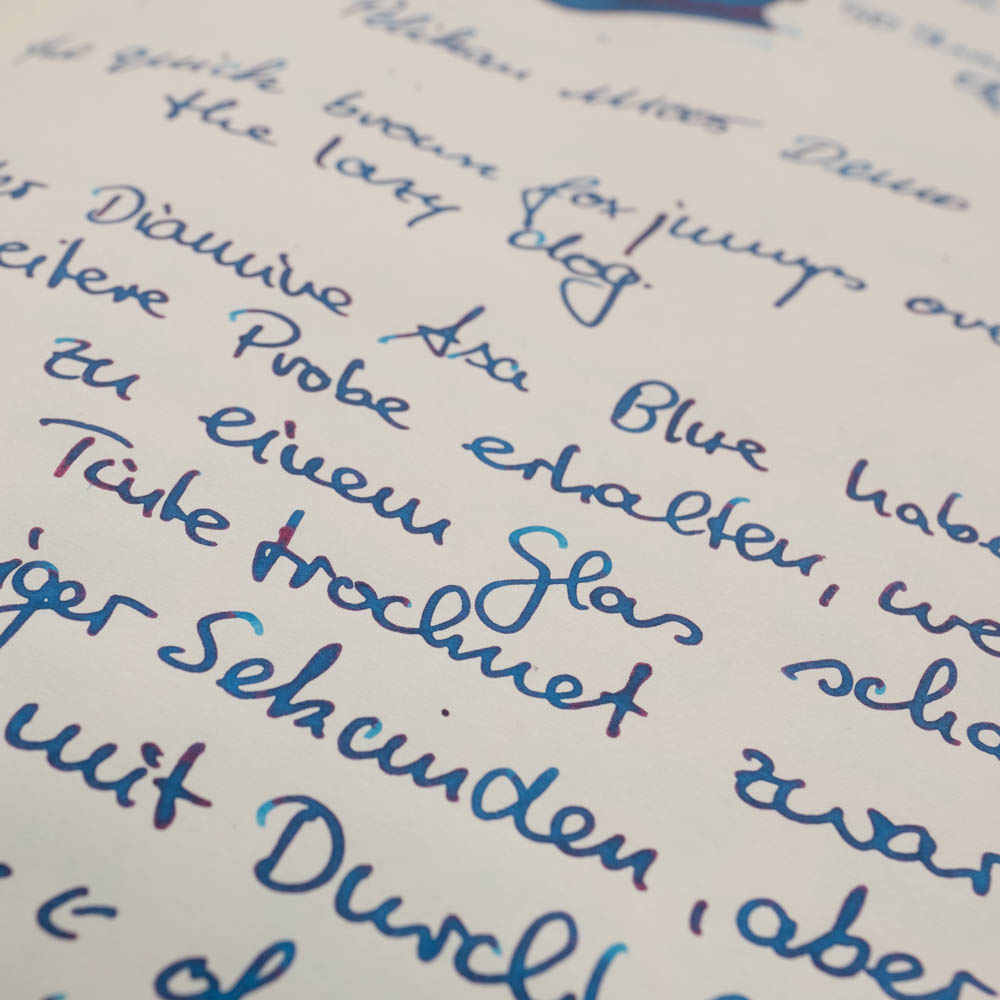 Pelikan M205 Demo
the quick brown fox jumps over
the lazy dog.
Diamine Asa Blue habe
eitere Probe erhalten, we
zu einem Glas scho
Tinte trocknet zwar
iger Sekunden, aber
mit Durchl